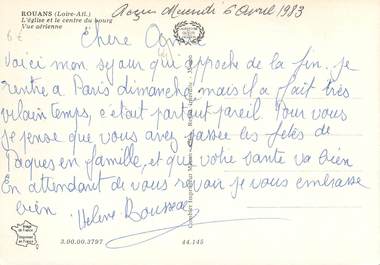 ROUANS (Loire-Atl.)
L'église et le centre du bourg
Vue aérienne
6€
reçu Mercredi 6 Avril 1983
Chère
Voici mon séjour qui approche de la fin. je
rentre a Paris dimanche, mais il a fait très
vilain temps, c'était partout pareil. Pour vous
je pense que vous avez passée les fêtes de
Paques en famille, et que votre santé va bien
En attendant de vous revoir je vous embrasse
bien.
Helene
3.00.00.3797
44.145